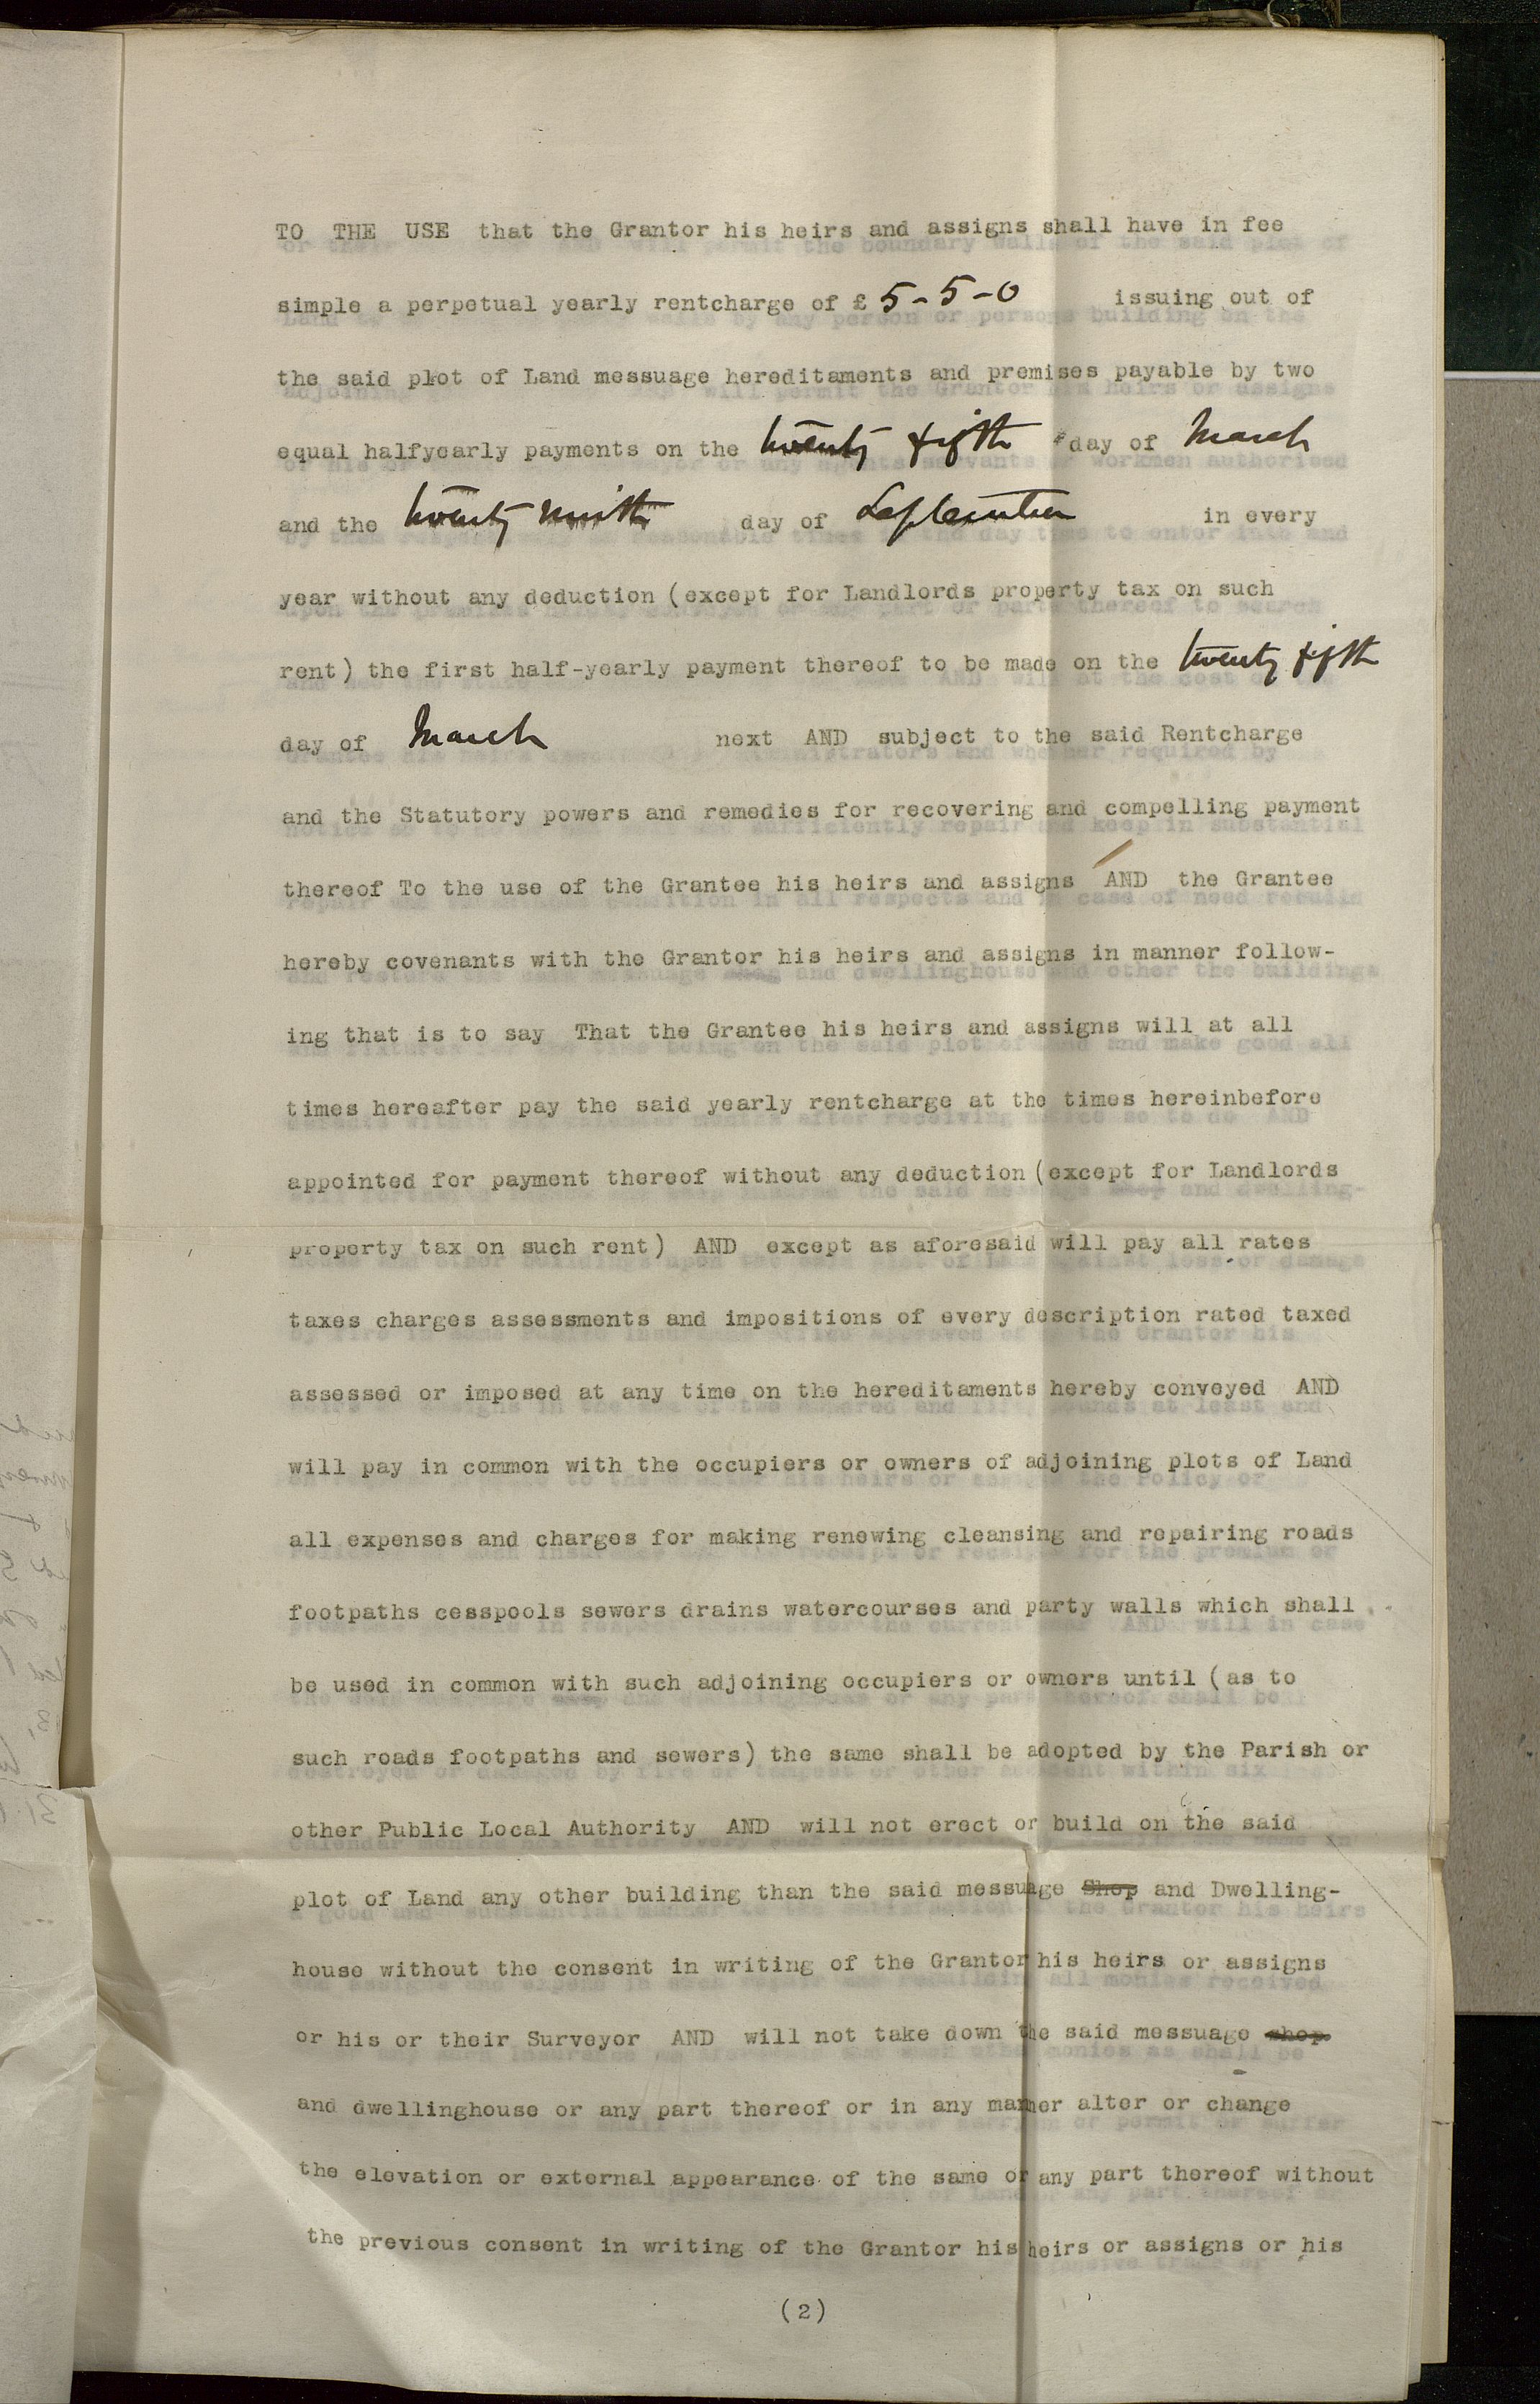 TO THE USE that the Grantor his heirs and assigns shall have in fee
simple a perpetual yearly rentcharge of £ 5-5-0 issuing out of
the said plot of Land messuage hereditaments and premises payable by two
equal halfyearly payments on the twenty fifth day of March
and the twenty ninth day of September in every
year without any deduction (except for Landlords property tax on such
rent) the first half-yearly payment thereof to be made on the twenty fifth
day of March next AND subject to the said Rentcharge
and the Statutory powers and remedies for recovering and compelling payment
thereof To the use of the Grantee his heirs and assigns AND the Grantee
hereby covenants with the Grantor his heirs and assigns in manner follow-
ing that is to say That the Grantee his heirs and assigns will at all
times hereafter pay the said yearly rentcharge at the times hereinbefore
appointed for payment thereof without any deduction (except for Landlords
property tax on such rent) AND except as aforesaid will pay all rates
taxes charges assessments and impositions of every description rated taxed
assessed or imposed at any time on the hereditaments hereby conveyed AND
will pay in common with the occupiers or owners of adjoining plots of Land
all expenses and charges for making renewing cleansing and repairing roads
footpaths cesspools sewers drains watercourses and party walls which shall
be used in common with such adjoining occupiers or owners until (as to
such roads footpaths and sewers) the same shall be adopted by the Parish or
other Public Local Authority AND will not erect or build on the said
plot of Land any other building than the said messuage Shop and Dwelling-
house without the consent in writing of the Grantor his heirs or assigns
or his or their Surveyor AND will not take down the said messuage shop
and dwellinghouse or any part thereof or in any manner alter or change
the elevation or external appearance of the same or any part thereof without
the previous consent in writing of the Grantor his heirs or assigns or his
(2)